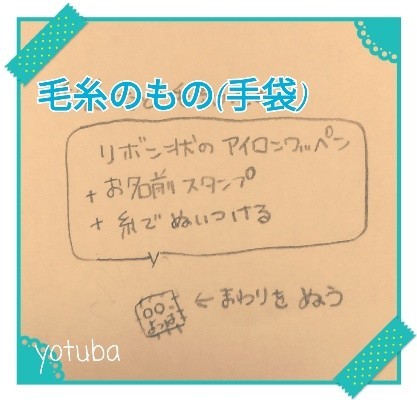 毛糸のもの(手袋)
リボン状のアイロンワッペン
+お名前スタンプ
+糸でぬいつける
○○
よつば
←まわりをぬう
yotuba